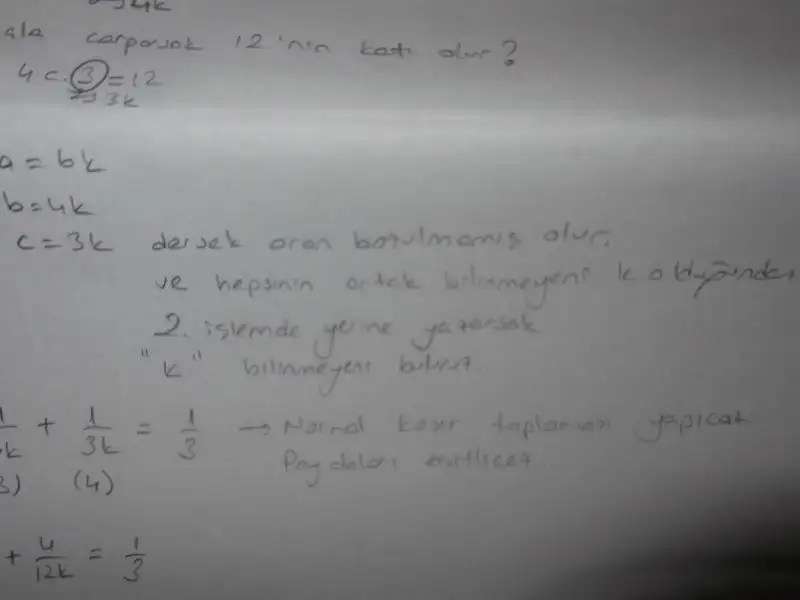 çarparsak 12'nin katı olur?
4c.3=12
3k
a = 6k
b=4k
c=3k dersek oran bozulmamış olur.
ve hepsinin ortak bilinmeyeni k olduğundan
2. işlemde yerine yazarsak
"k" bilinmeyeni buluruz
+ 1/3k = 1/3 → Normal kesir toplaması yapıcaz
3) (4) Paydaları eşitlicez
+ 4/12k = 1/3